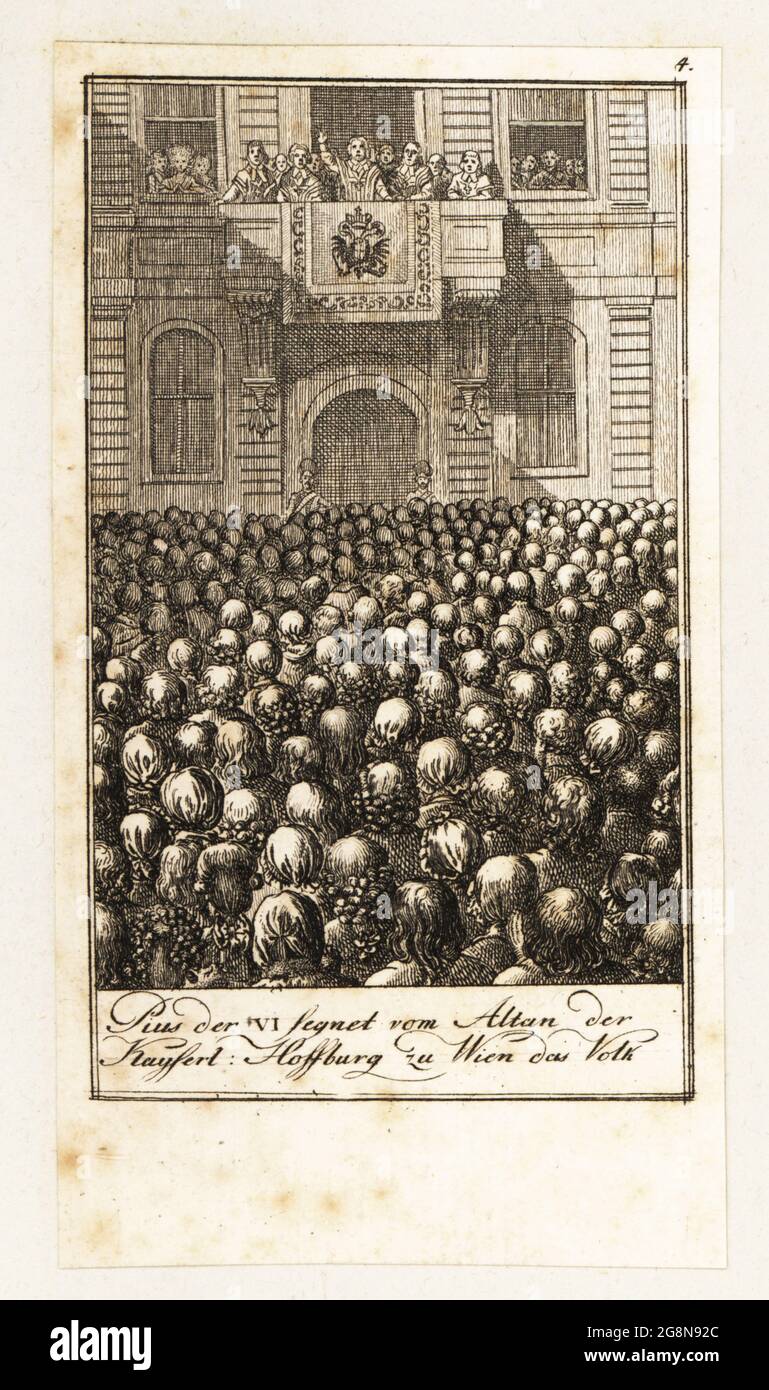 4.
Pius der VI segnet vom Altan der
Kayserl: Hoffburg zu Wien das Volk
alamy
alamy
Image ID: 2G8N92C
www.alamy.com